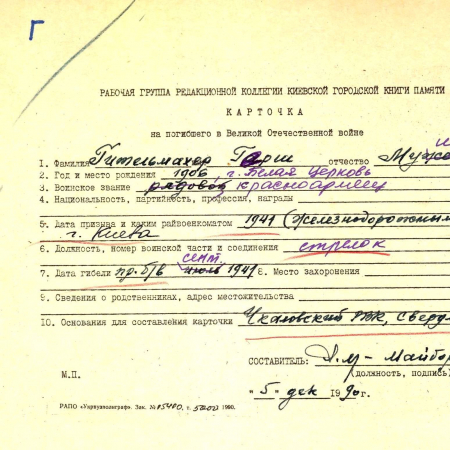 Г
РАБОЧАЯ ГРУППА РЕДАКЦИОННОЙ КОЛЛЕГИИ КИЕВСКОЙ ГОРОДСКОЙ КНИГИ ПАМЯТИ
КАРТОЧКА
на погибшего в Великой Отечественной войне
1. Фамилия Гительмахер Герш отчество
2. Год и место рождения 1906, г. Белая Церковь
3. Воинское звание рядовой красноармеец
4. Национальность, партийность, профессия, награды
5. Дата призыва и каким райвоенкоматом 1941 (Железнодорожным
г. Киева
6. Должность, номер воинской части и соединения стрелок
сент.
7. Дата гибели пр. б/в июль 1941 8. Место захоронения
9. Сведения о родственниках, адрес местожительства
10. Основания для составления карточки Чкаловский РВК, Сверд
СОСТАВИТЕЛЬ: Майбор
(должность, подпись)
М.П.
"5" дек 1990г.
РАПО «Укрвузполиграф». Зак. № т. 5000 1990.